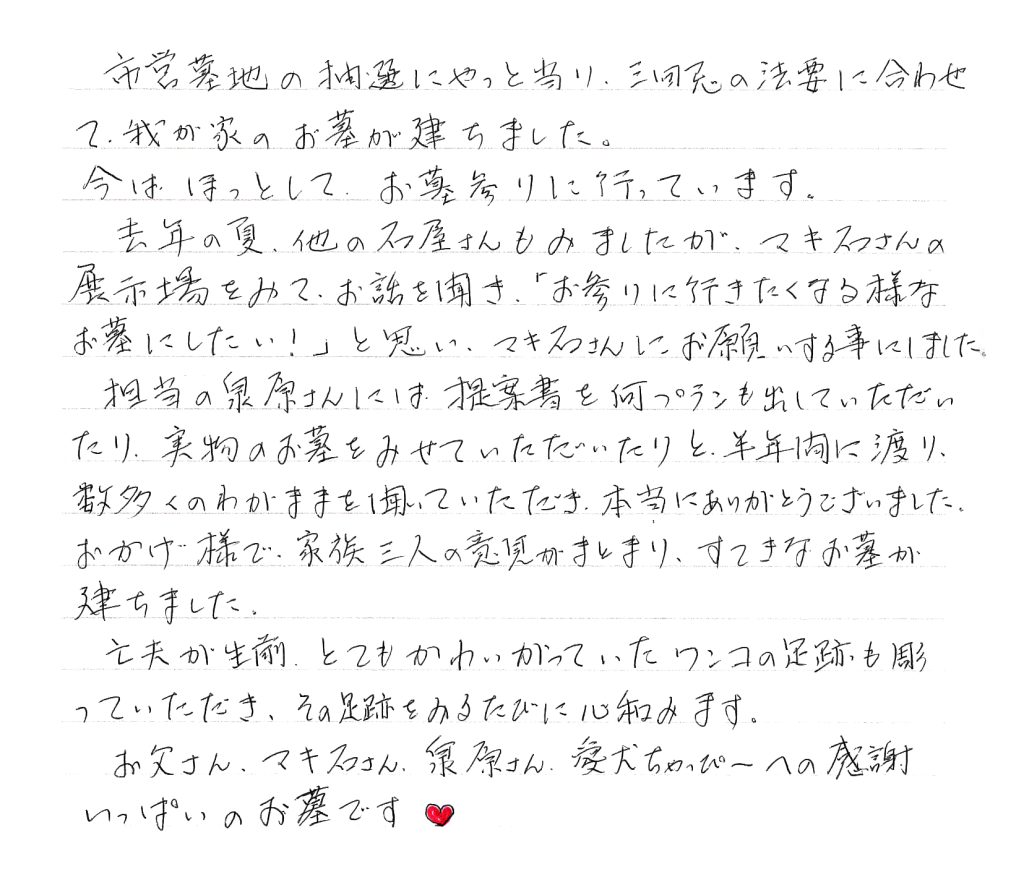 市営墓地の抽選にやっと当り、三回忌の法要に合わせ
て、我が家のお墓が建ちました。
今は ほっとして、お墓参りに行っています。
去年の夏、他の石屋さんもみましたが、マキ石さんの
展示場をみて、お話を聞き、「お参りに行きたくなる様な
お墓にしたい!」と思い、マキ石さんにお願いする事にしました。
担当の泉原さんには 提案書を何プランも出していただい
たり、実物のお墓をみせていただいたりと、半年間に渡り、
数多くのわがままを聞いていただき、本当にありがとうございました。
おかげ様で、家族三人の意見がまとまり、すてきなお墓が
建ちました。
亡夫が生前、とてもかわいがっていたワンコの足跡も彫
っていただき、その足跡をみるたびに心和みます。
お父さん、マキ石さん、泉原さん、愛犬ちゃっぴーへの感謝
いっぱいのお墓です